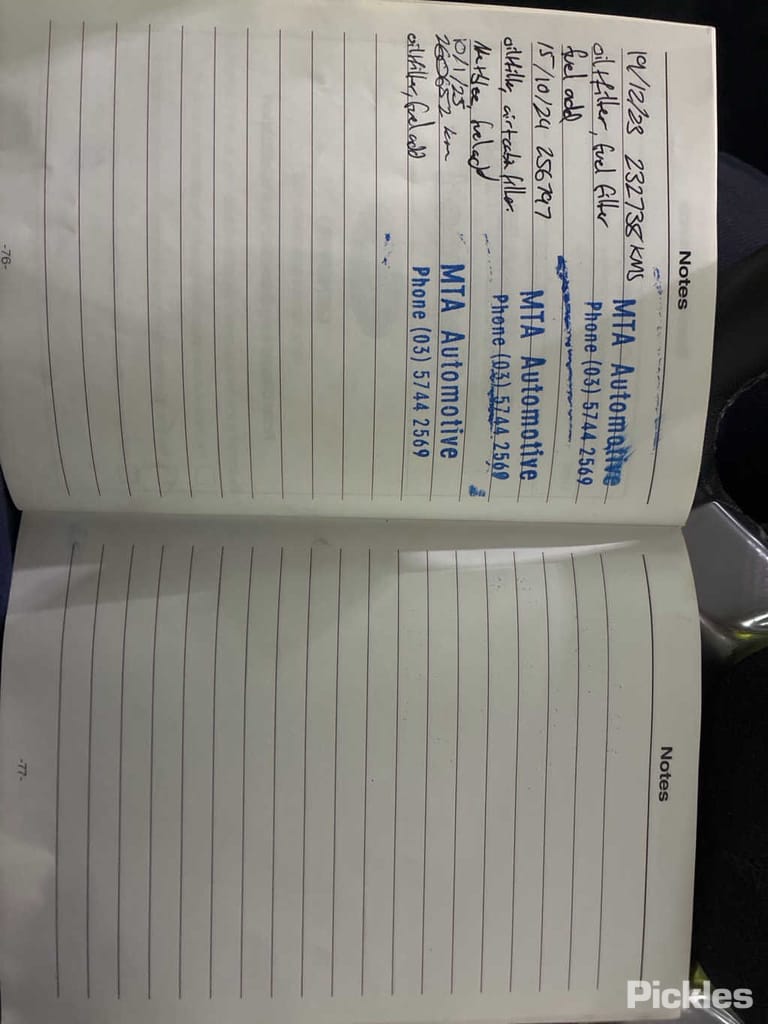 Notes
19/12/23 232738 KMS
MTA Automotive
oil+filter, fuel filter
Phone (03) 5744 2569
fuel add
15/10/24 256797
MTA Automotive
oil+filter, air+cabin filter.
Phone (03) 5744 2569
fuel add
10/1/25
km
MTA Automotive
oil+filter, fuel add
Phone (03) 5744 2569
-76-
Notes
-77-
Pickles